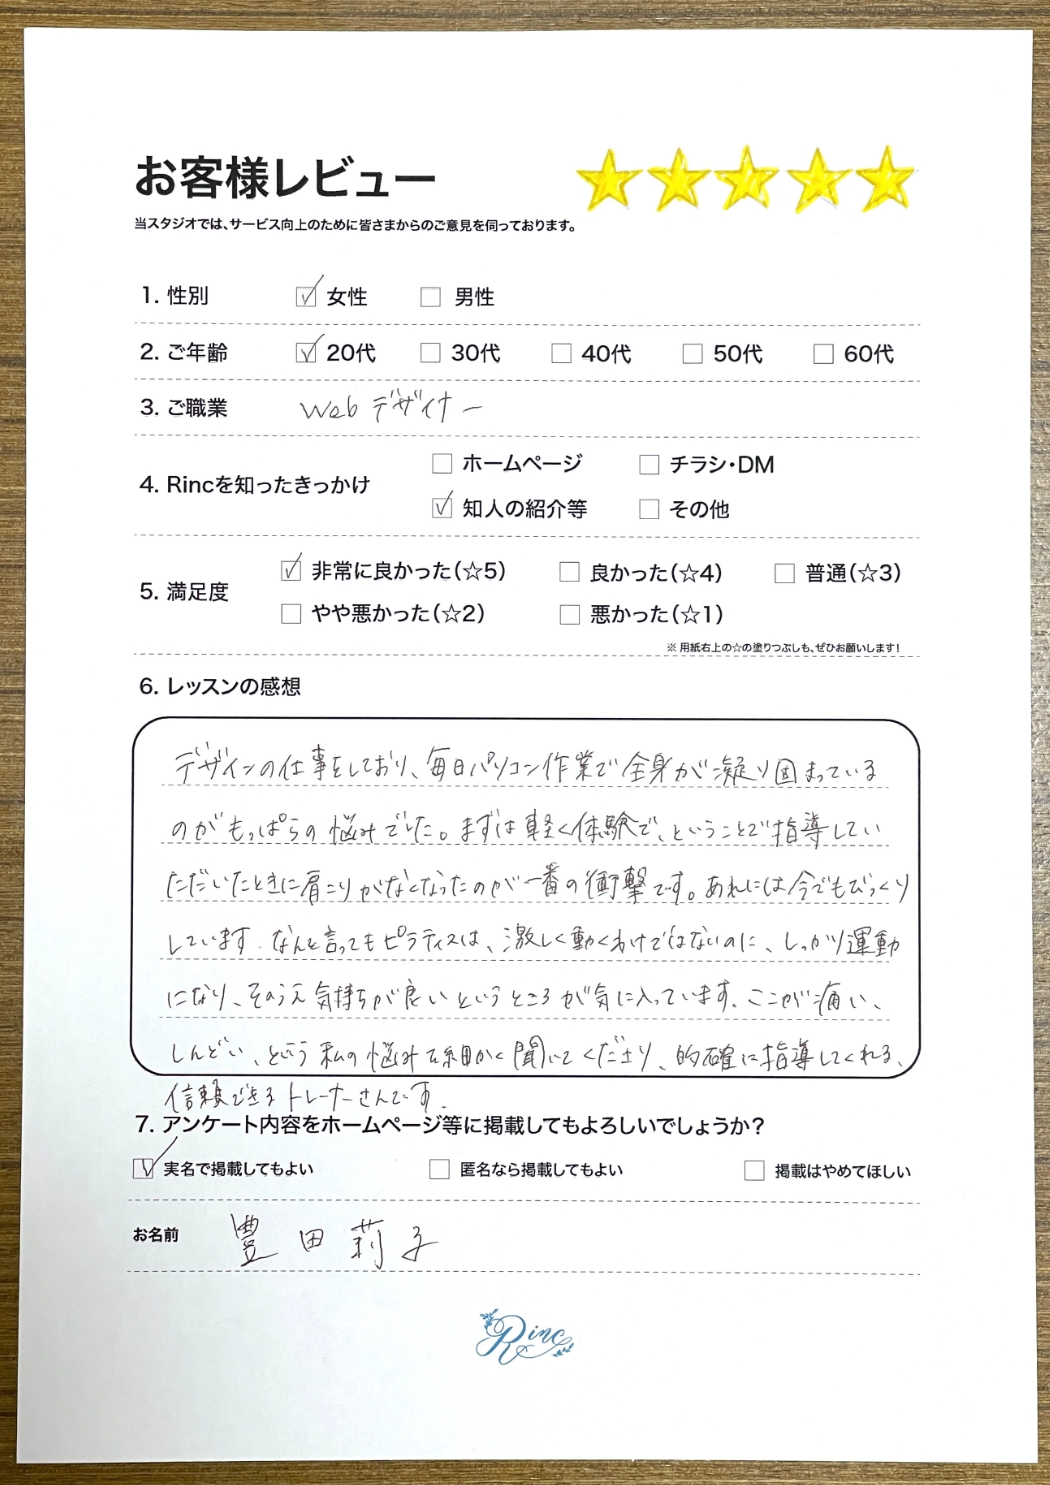 お客様レビュー
当スタジオでは、サービス向上のために皆さまからのご意見を伺っております。
1. 性別 女性 男性
2. ご年齢 20代 30代 40代 50代 60代
3. ご職業 Webデザイナー
ホームページ チラシ・DM
4. Rincを知ったきっかけ
知人の紹介等 その他
非常に良かった(☆5) 良かった(☆4) 普通(☆3)
5. 満足度
やや悪かった(☆2) 悪かった(☆1)
※ 用紙右上の☆の塗りつぶしも、ぜひお願いします!
6. レッスンの感想
デザインの仕事をしており、毎日パソコン作業で全身が凝り固まっている
のがもっぱらの悩みでした。まずは軽く体験で、ということで指導してい
ただいたときに肩こりがなくなったのが一番の衝撃です。あれには今でもびっくり
しています。なんと言ってもピラティスは、激しく動くわけではないのに、しっかり運動
になり、そのうえ気持ちが良いというところが気に入っています。ここが痛い、
しんどい、という私の悩みを細かく聞いてくださり、的確に指導してくれる、
信頼できるトレーナーさんです。
7. アンケート内容をホームページ等に掲載してもよろしいでしょうか?
実名で掲載してもよい 匿名なら掲載してもよい 掲載はやめてほしい
お名前 豊田莉子
Rinc